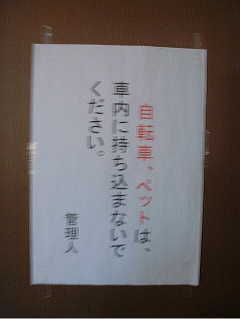 自転車、ペットは、
車内に持ち込まないで
ください。
管理人